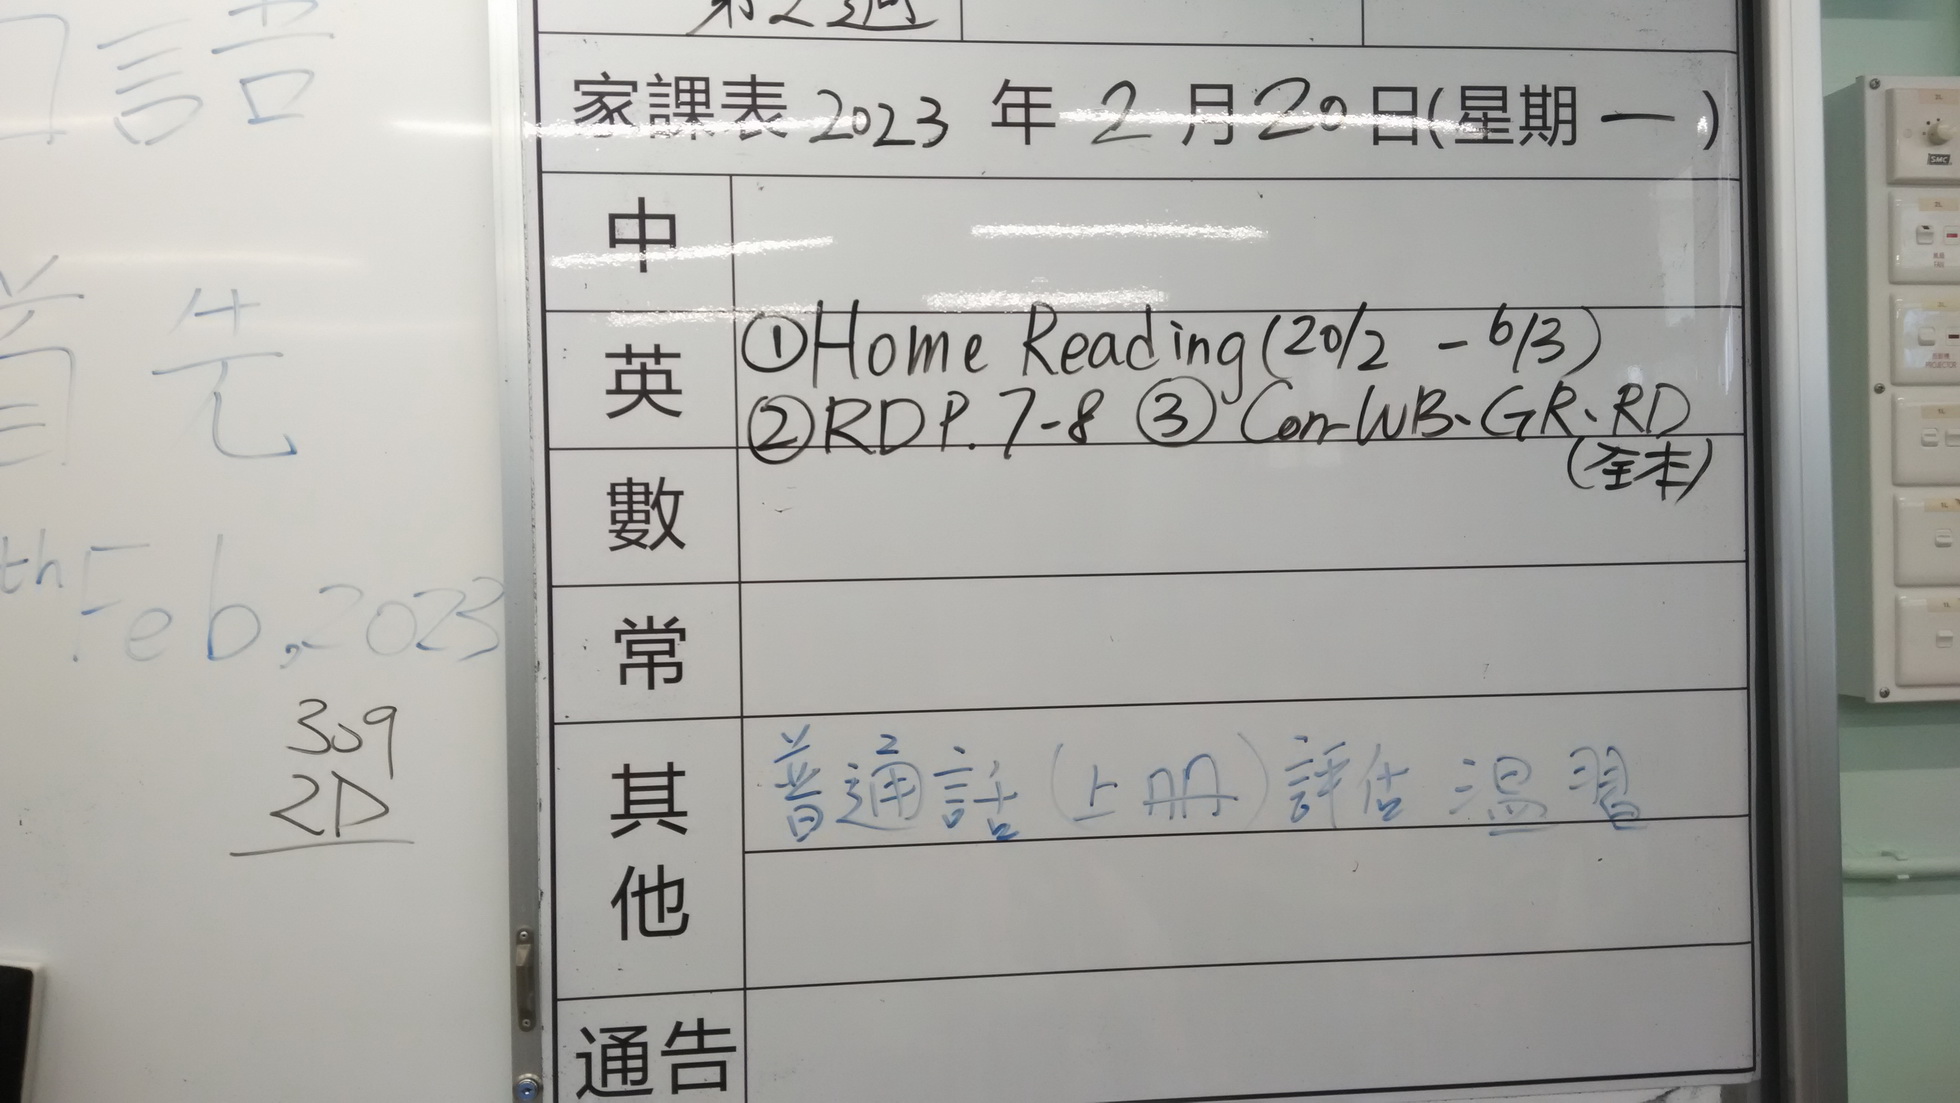 語
首先
th Feb, 2023
309
2D
第2週
家課表 2023 年 2 月 20 日(星期 一 )
中
英
①Home Reading (20/2 - 6/3)
②RD P. 7-8 ③ Corr WB、GR、RD
(全本)
數
常
其他
普通話(上册)評估 溫習
通告
SMC